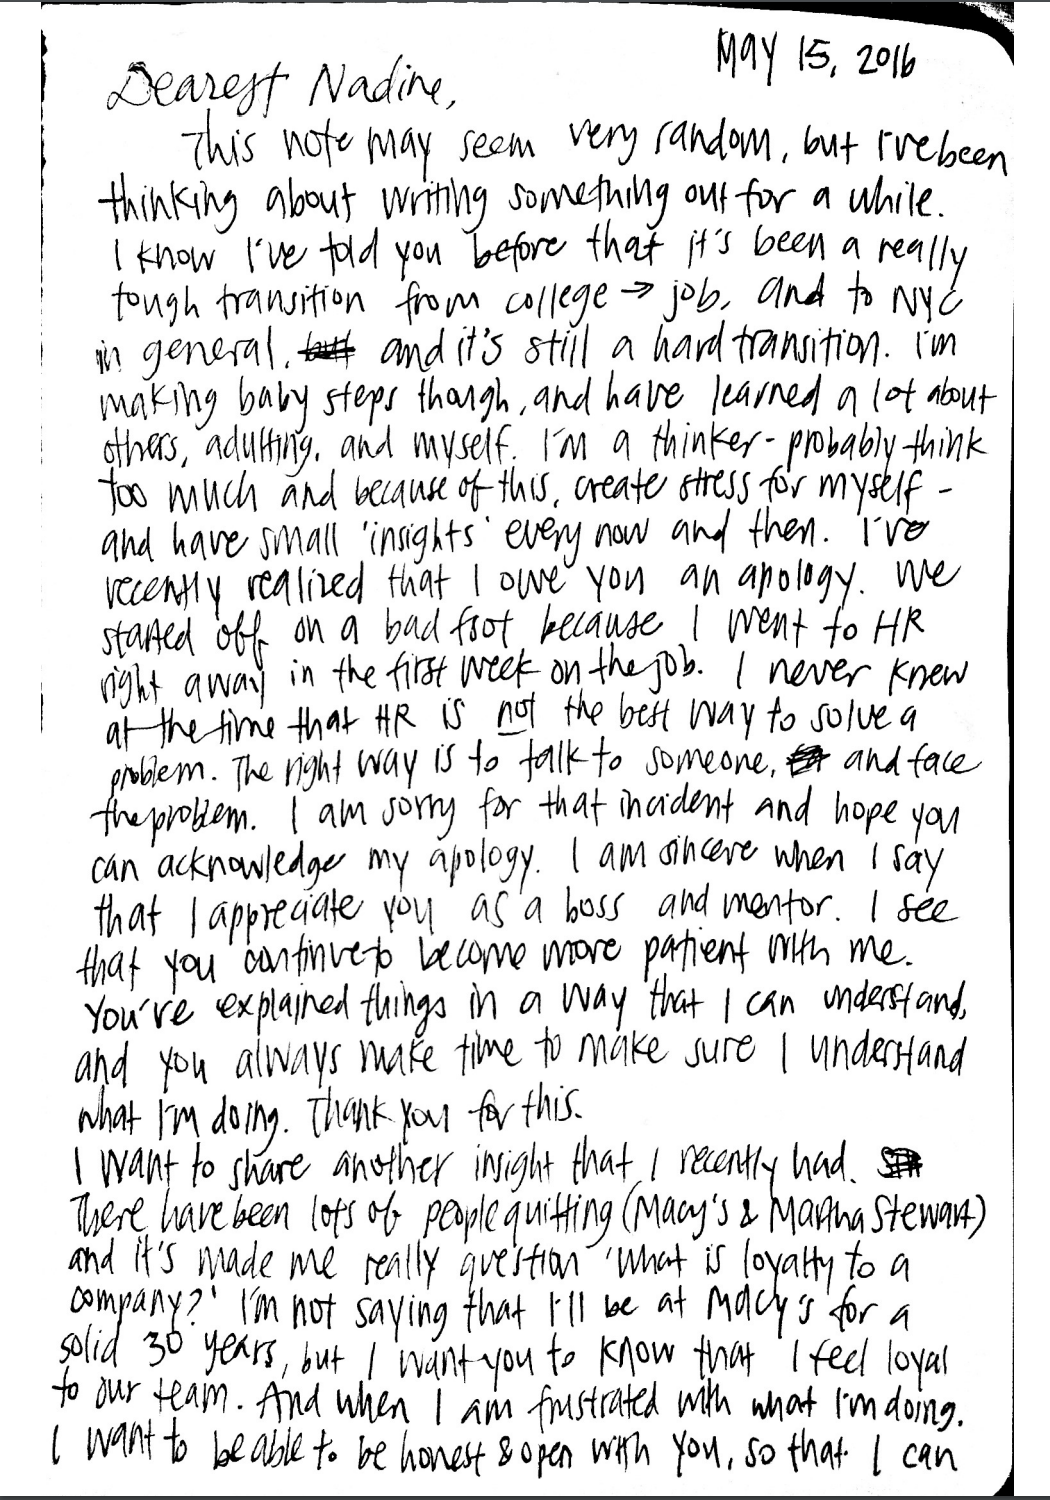 May 15, 2016
Dearest Nadine,
This note may seem very random, but I've been
thinking about writing something out for a while.
I know I've told you before that it's been a really
tough transition from college → job, and to NYC
in general, but and it's still a hard transition. I'm
making baby steps though, and have learned a lot about
others, adulting, and myself. I'm a thinker - probably think
too much and because of this, create stress for myself -
and have small 'insights' every now and then. I've
recently realized that I owe you an apology. We
started off on a bad foot because I went to HR
right away in the first week on the job. I never knew
at the time that HR is not the best way to solve a
problem. The right way is to talk to someone, and face
the problem. I am sorry for that incident and hope you
can acknowledge my apology. I am sincere when I say
that I appreciate you as a boss and mentor. I see
that you continue to become more patient with me.
You've explained things in a way that I can understand,
and you always make time to make sure I understand
what I'm doing. Thank you for this.
I want to share another insight that I recently had.
There have been lots of people quitting (Macy's & Martha Stewart)
and it's made me really question 'what is loyalty to a
company?' I'm not saying that I'll be at Macy's for a
solid 30 years, but I want you to know that I feel loyal
to our team. And when I am frustrated with what I'm doing,
I want to be able to be honest & open with you, so that I can